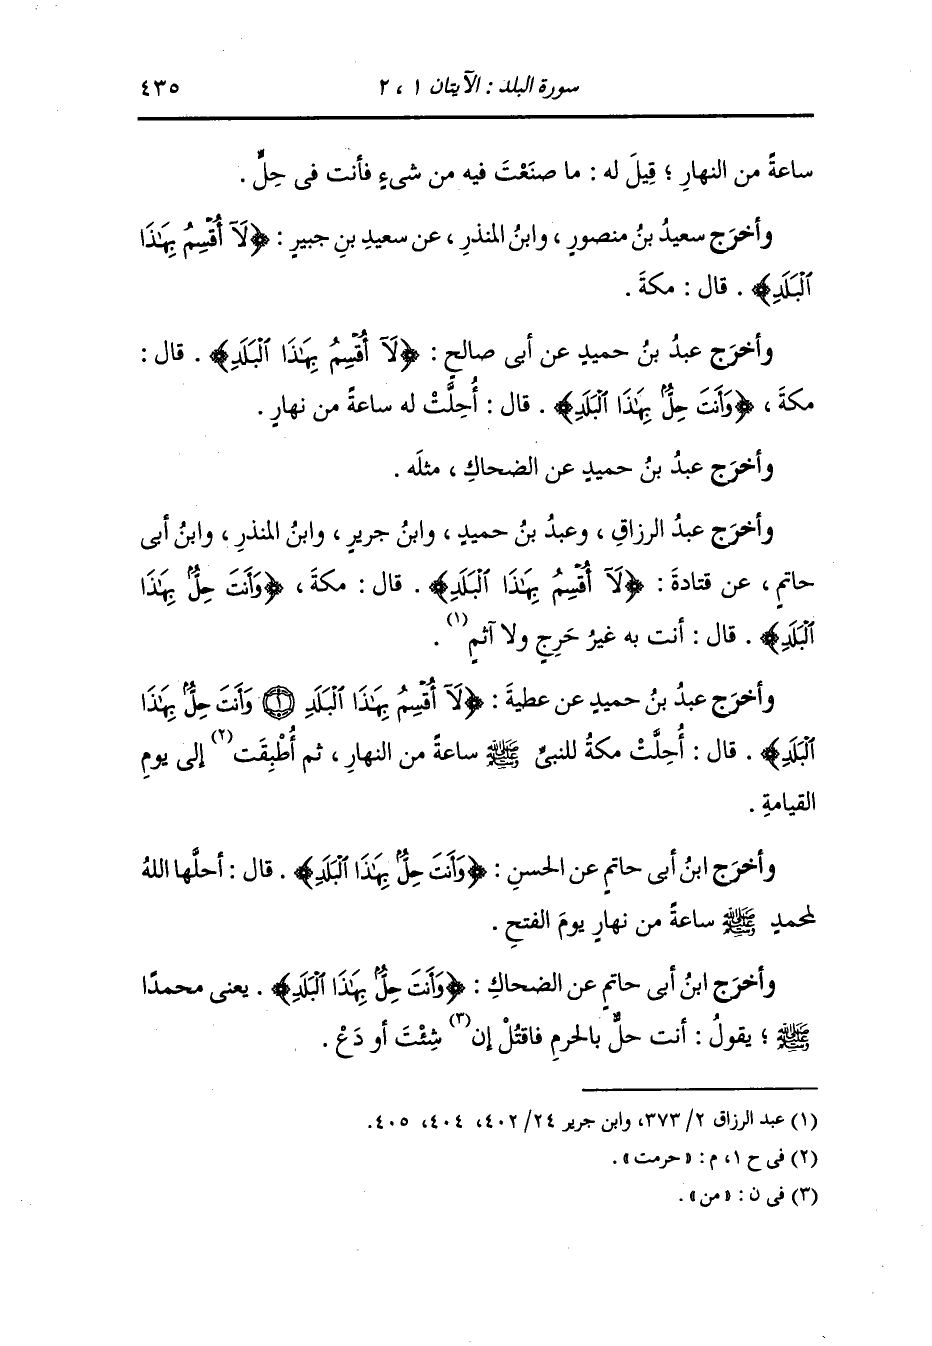 سورة البلد : الآيتان ١ ، ٢ ٤٣٥
ساعةً من النهارِ ؛ قِيلَ له : ما صنَعْتَ فيه من شىءٍ فأنت فى حِلٍّ .
وأخرَج سعيدُ بنُ منصورٍ ، وابنُ المنذرِ ، عن سعيدِ بنِ جبيرٍ : ﴿لَآ أُقْسِمُ بِهَٰذَا
ٱلْبَلَدِ﴾ . قال : مكةَ .
وأخرَج عبدُ بنُ حميدٍ عن أبى صالحٍ : ﴿لَآ أُقْسِمُ بِهَٰذَا ٱلْبَلَدِ﴾ . قال :
مكةَ ، ﴿وَأَنتَ حِلُّۢ بِهَٰذَا ٱلْبَلَدِ﴾ . قال : أُحِلَّتْ له ساعةً من نهارٍ .
وأخرَج عبدُ بنُ حميدٍ عن الضحاكِ ، مثلَه .
وأخرَج عبدُ الرزاقِ ، وعبدُ بنُ حميدٍ ، وابنُ جريرٍ ، وابنُ المنذرِ ، وابنُ أبى
حاتمٍ ، عن قتادةَ : ﴿لَآ أُقْسِمُ بِهَٰذَا ٱلْبَلَدِ﴾ . قال : مكةَ ، ﴿وَأَنتَ حِلُّۢ بِهَٰذَا
ٱلْبَلَدِ﴾ . قال : أنت به غيرُ حَرِجٍ ولا آثمٍ(١) .
وأخرَج عبدُ بنُ حميدٍ عن عطيةَ : ﴿لَآ أُقْسِمُ بِهَٰذَا ٱلْبَلَدِ ۝١ وَأَنتَ حِلُّۢ بِهَٰذَا
ٱلْبَلَدِ﴾ . قال : أُحِلَّتْ مكةُ للنبىِّ ﷺ ساعةً من النهارِ ، ثم أُطْبِقَت(٢) إلى يومِ
القيامةِ .
وأخرَج ابنُ أبى حاتمٍ عن الحسنِ : ﴿وَأَنتَ حِلُّۢ بِهَٰذَا ٱلْبَلَدِ﴾ . قال : أحلَّها اللهُ
لمحمدٍ ﷺ ساعةً من نهارٍ يومَ الفتحِ .
وأخرَج ابنُ أبى حاتمٍ عن الضحاكِ : ﴿وَأَنتَ حِلُّۢ بِهَٰذَا ٱلْبَلَدِ﴾ . يعنى محمدًا
ﷺ ؛ يقولُ : أنت حلٌّ بالحرمِ فاقتُلْ إن(٣) شِئْتَ أو دَعْ .
(١) عبد الرزاق ٢/ ٣٧٣، وابن جرير ٢٤/ ٤٠٢، ٤٠٤، ٤٠٥.
(٢) فى ح ١، م : «حرمت» .
(٣) فى ن : «من» .